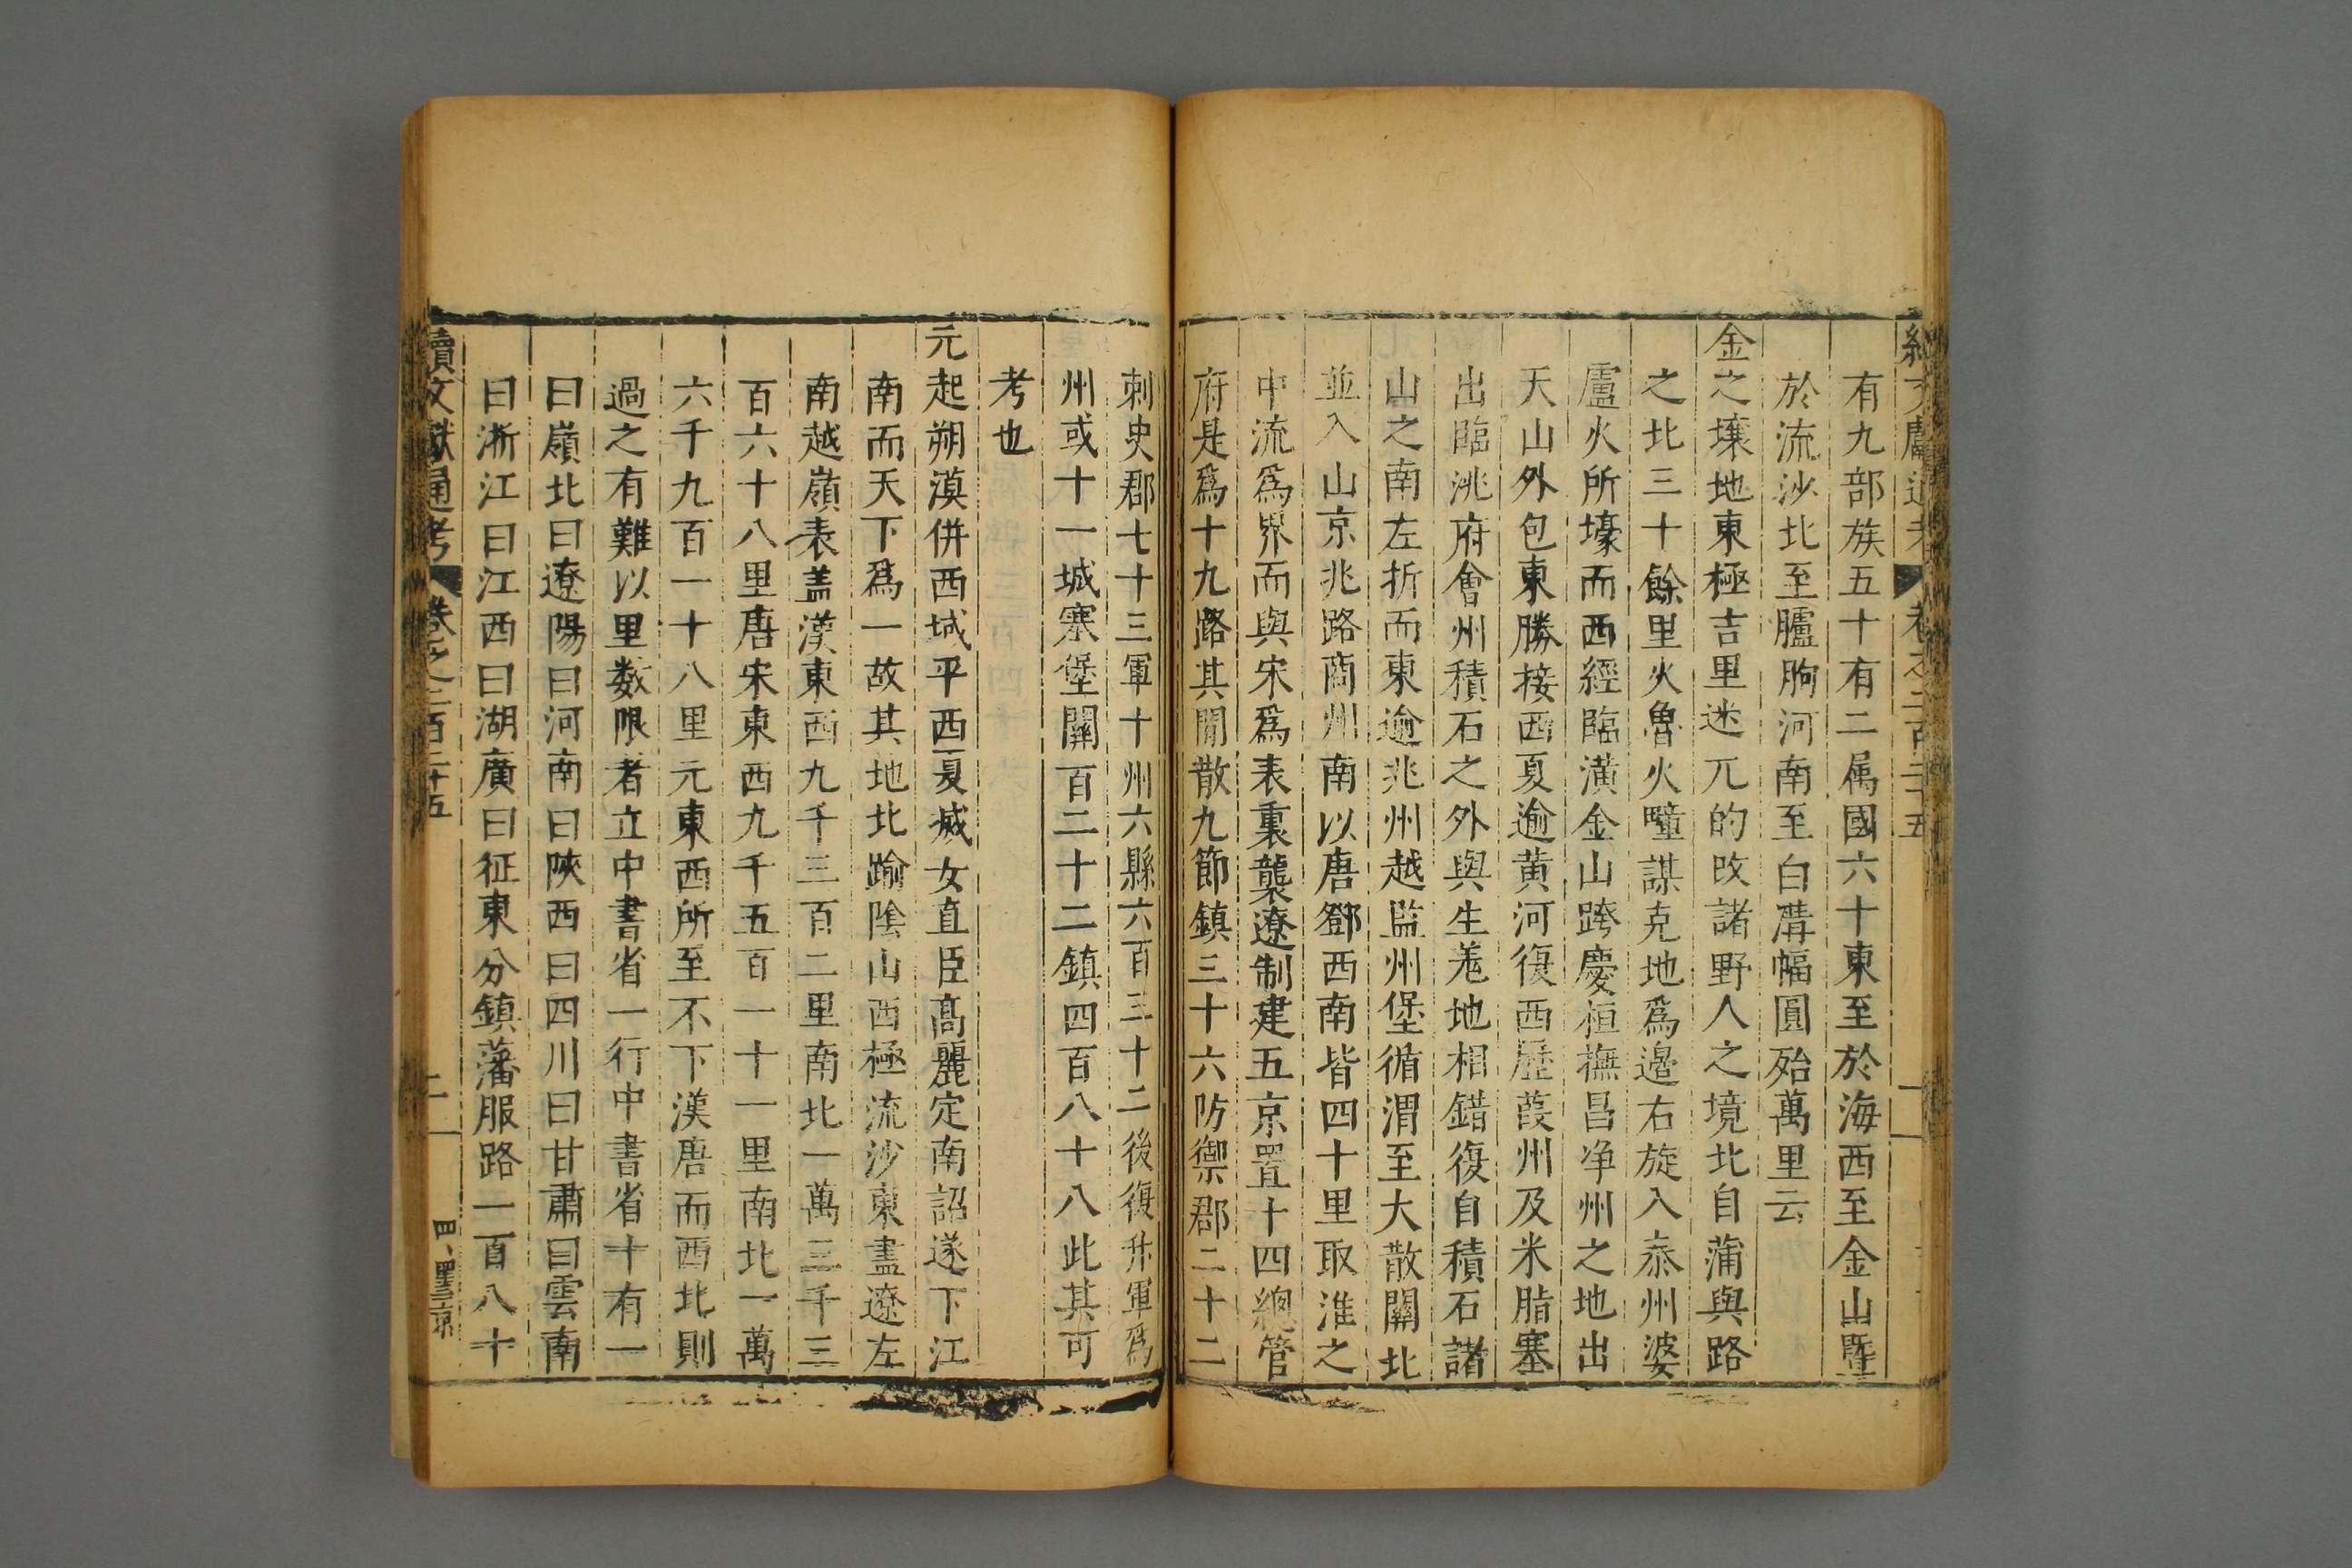 續文獻通考 卷之二百二十五
有九部族五十有二属國六十東至於海西至金山暨
於流沙北至臚朐河南至白溝幅圓殆萬里云
金之壤地東極吉里迷兀的改諸野人之境北自蒲與路
之北三十餘里火魯火疃謀克地爲邉右旋入泰州婆
盧火所壕而西經臨潢金山跨慶桓撫昌净州之地出
天山外包東勝接西夏逾黄河復西歷葭州及米脂塞
出臨洮府會州積石之外與生羗地相錯復自積石諸
山之南左折而東逾洮州越监州堡循渭至大散關北
並入山京兆路商州南以唐鄧西南皆四十里取淮之
中流爲界而與宋爲表裏襲遼制建五京置十四總管
府是爲十九路其間散九節鎮三十六防禦郡二十二
刺史郡七十三軍十州六縣六百三十二後復升軍爲
州或十一城寨堡關百二十二鎮四百八十八此其可
考也
元起朔漠併西域平西夏滅女直臣髙麗定南詔遂下江
南而天下爲一故其地北踰陰山西極流沙東盡遼左
南越嶺表盖漢東西九千三百二里南北一萬三千三
百六十八里唐宋東西九千五百一十一里南北一萬
六千九百一十八里元東西所至不下漢唐而西北則
過之有難以里数限者立中書省一行中書省十有一
曰嶺北曰遼陽曰河南曰陝西曰四川曰甘肅曰雲南
曰浙江曰江西曰湖廣曰征東分鎮藩服路一百八十
續文獻通考 卷之二百二十五 二